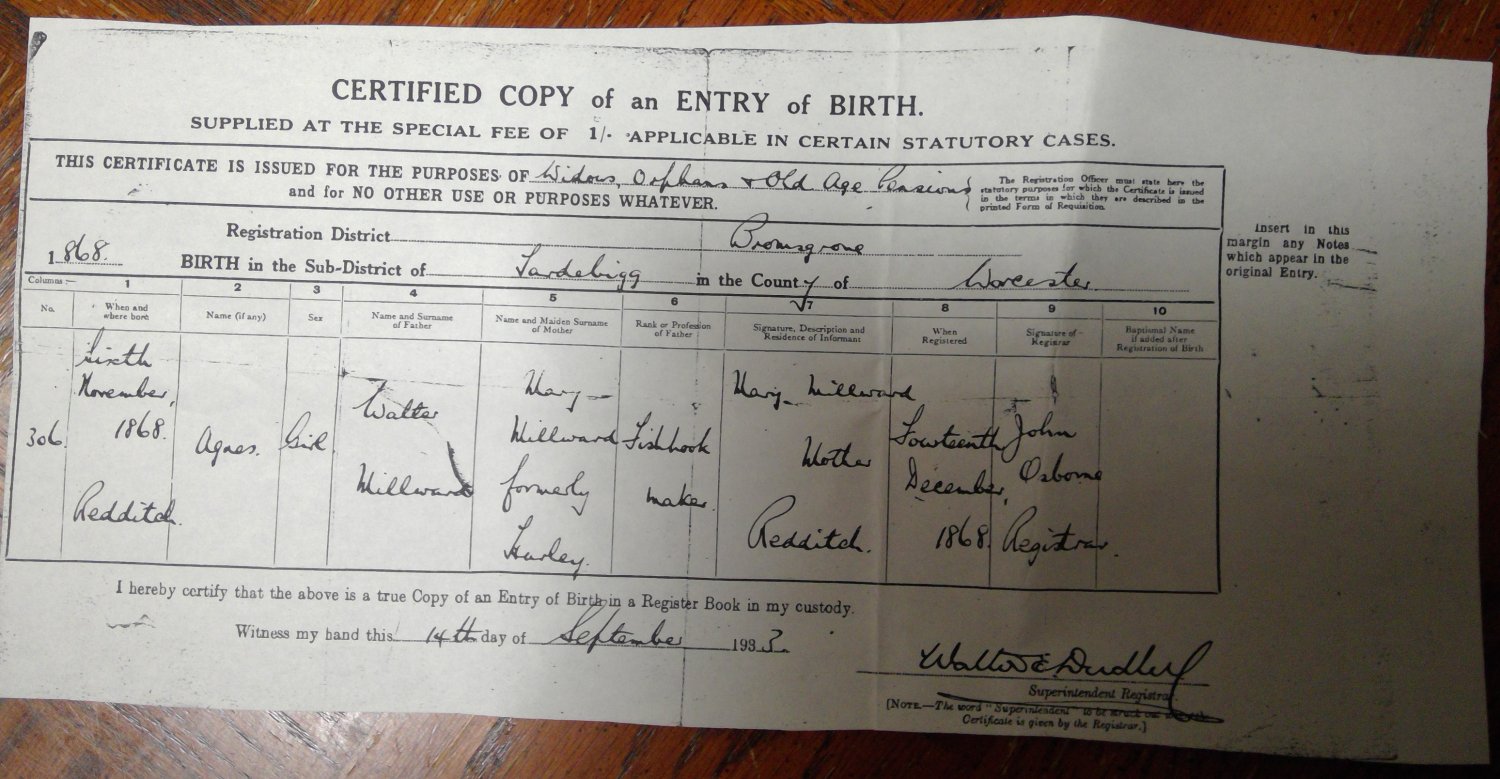 CERTIFIED COPY of an ENTRY of BIRTH.
SUPPLIED AT THE SPECIAL FEE OF 1/- APPLICABLE IN CERTAIN STATUTORY CASES.
THIS CERTIFICATE IS ISSUED FOR THE PURPOSES OF Widows, Orphans & Old Age Pensions
and for NO OTHER USE OR PURPOSES WHATEVER.
The Registration Officer must state here the
statutory purposes for which the Certificate is issued
in the terms in which they are described in the
printed Form of Requisition.
Registration District Bromsgrove
1868. BIRTH in the Sub-District of Tardebigg in the County of Worcester
Insert in this
margin any Notes
which appear in the
original Entry.
Columns:— 1 2 3 4 5 6 7 8 9 10
No.
When and
where born
Name (if any)
Sex
Name and Surname
of Father
Name and Maiden Surname
of Mother
Rank or Profession
of Father
Signature, Description and
Residence of Informant
When
Registered
Signature of
Registrar
Baptismal Name
if added after
Registration of Birth
306.
Sixth
November,
1868.
Redditch.
Agnes.
Girl
Walter
Millward
Mary
Millward
formerly
Hurley.
Fishhook
maker.
Mary Millward
Mother
Redditch.
Fourteenth
December,
1868.
John
Osborne
Registrar.
I hereby certify that the above is a true Copy of an Entry of Birth in a Register Book in my custody.
Witness my hand this 14th day of September 1933.
Walter E Dudley
Superintendent Registrar
[NOTE.—The word "Superintendent" to be struck out when the
Certificate is given by the Registrar.]